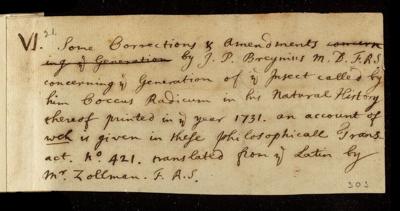 21
VI. Some Corrections & Amendments concern
ing ye Generation by J. P. Breynius M. D. F. R. S.
concerning ye Generation of ye Insect called by
him Coccus Radicum in his Natural History
thereof printed in ye year 1731. an account of
wch is given in these philosophicall Trans
act. No. 421. translated from ye Latin by
Mr. Zollman. F. R. S.
303